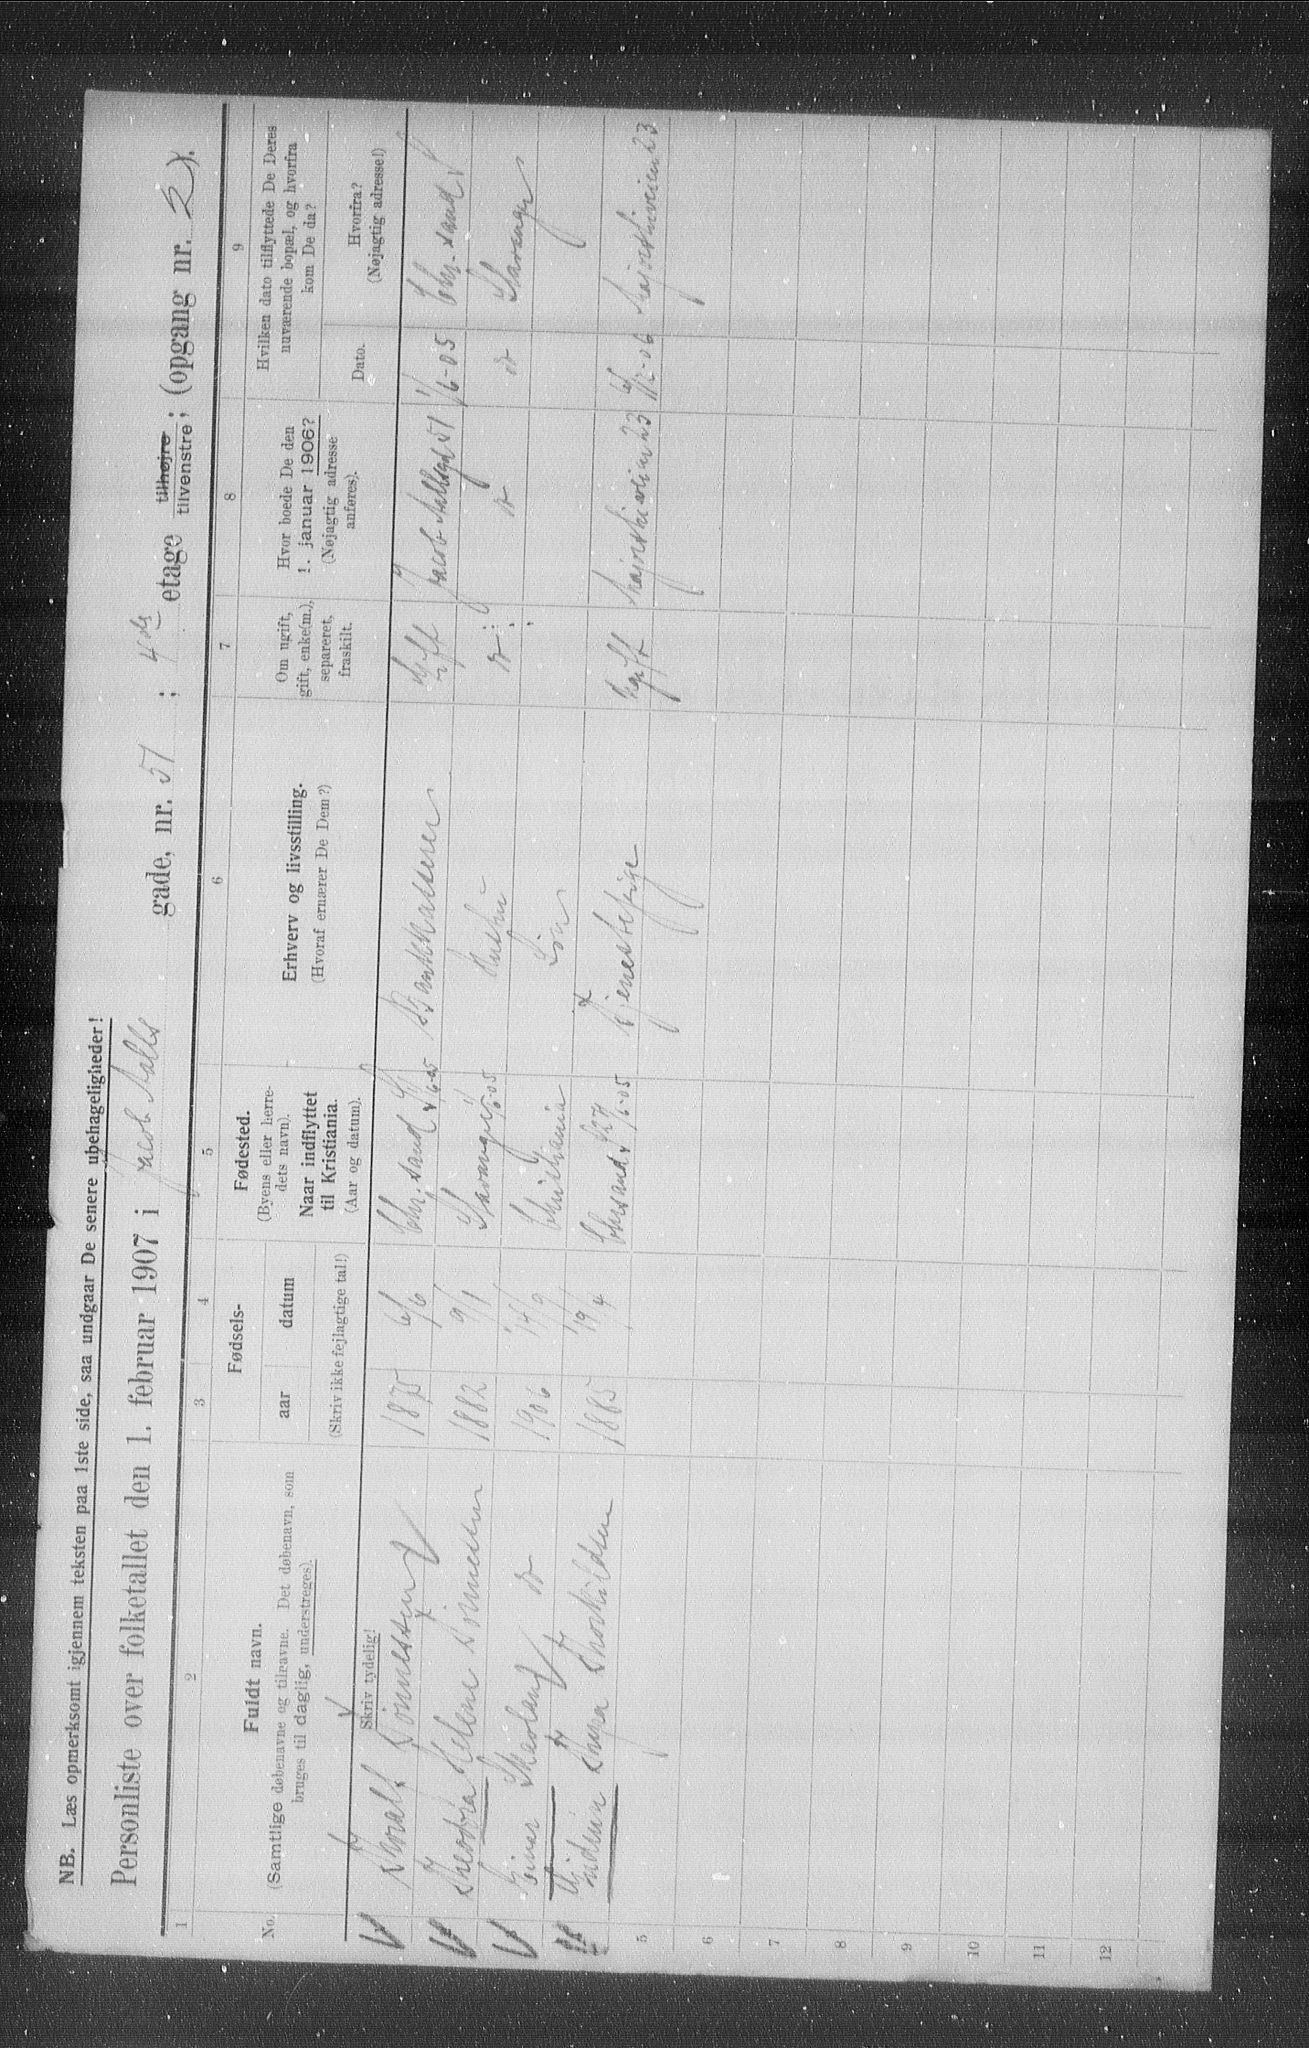 NB. Læs opmerksomt igjennem teksten paa 1ste side, saa undgaar De senere ubehageligheder!
Personliste over folketallet den 1. februar 1907 i Jacob Aalls gade, nr. 51 ; 4de etage tilhøjre tilvenstre ; (opgang nr. 2).
1 2 3 4 5 6 7 8 9
No.
Fuldt navn.
(Samtlige døbenavne og tilnavne. Det døbenavn, som
bruges til daglig, understreges).
Skriv tydelig!
Fødsels-
aar datum
(Skriv ikke fejlagtige tal!)
Fødested.
(Byens eller herre-
dets navn).
Naar indflyttet
til Kristiania.
(Aar og datum).
Erhverv og livsstilling.
(Hvoraf ernærer De Dem?)
Om ugift,
gift, enke(m.),
separeret,
fraskilt.
Hvor boede De den
1. januar 1906?
(Nøjagtig adresse
anføres).
Hvilken dato tilflyttede De Deres
nuværende bopæl, og hvorfra
kom De da?
Dato.
Hvorfra?
(Nøjagtig adresse!)
Thoralf Tønnessen 1875 6/6 Chr.sand Gift Jacob Aallsgd 51 1/6-05 Chr.sand
Theodora Helene Tønnessen 1882 9/1 Stavanger Hustru do do do Stavanger
Einar do 1906 14/9 Christiania Søn
Thora Thorkildsen 1885 19/4 Chrsand Tjenestepige Ugift 23 23
5
6
7
8
9
10
11
12